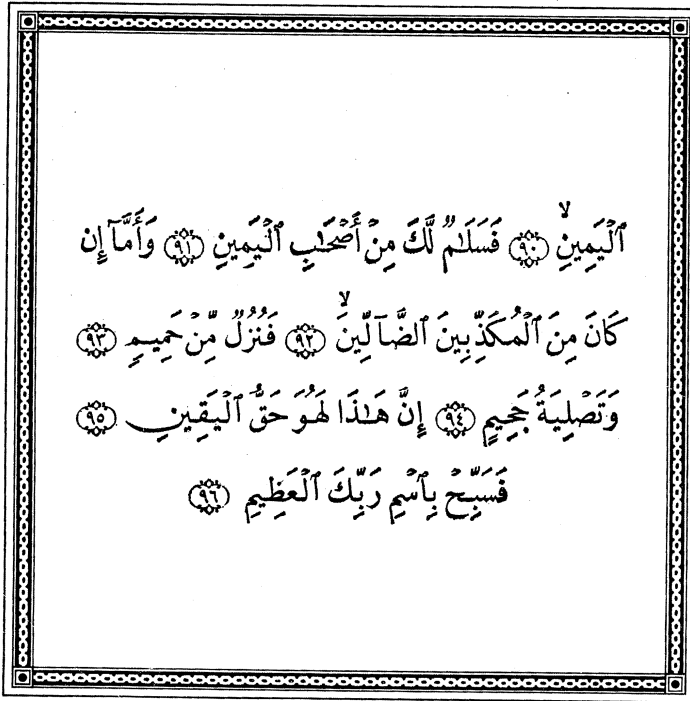 ٱلْيَمِينِۙ ﴿٩٠﴾ فَسَلَٰمٌ لَّكَ مِنْ أَصْحَٰبِ ٱلْيَمِينِ ﴿٩١﴾ وَأَمَّآ إِن
كَانَ مِنَ ٱلْمُكَذِّبِينَ ٱلضَّآلِّينَۙ ﴿٩٢﴾ فَنُزُلٌ مِّنْ حَمِيمٍ ﴿٩٣﴾
وَتَصْلِيَةُ جَحِيمٍ ﴿٩٤﴾ إِنَّ هَٰذَا لَهُوَ حَقُّ ٱلْيَقِينِ ﴿٩٥﴾
فَسَبِّحْ بِٱسْمِ رَبِّكَ ٱلْعَظِيمِ ﴿٩٦﴾